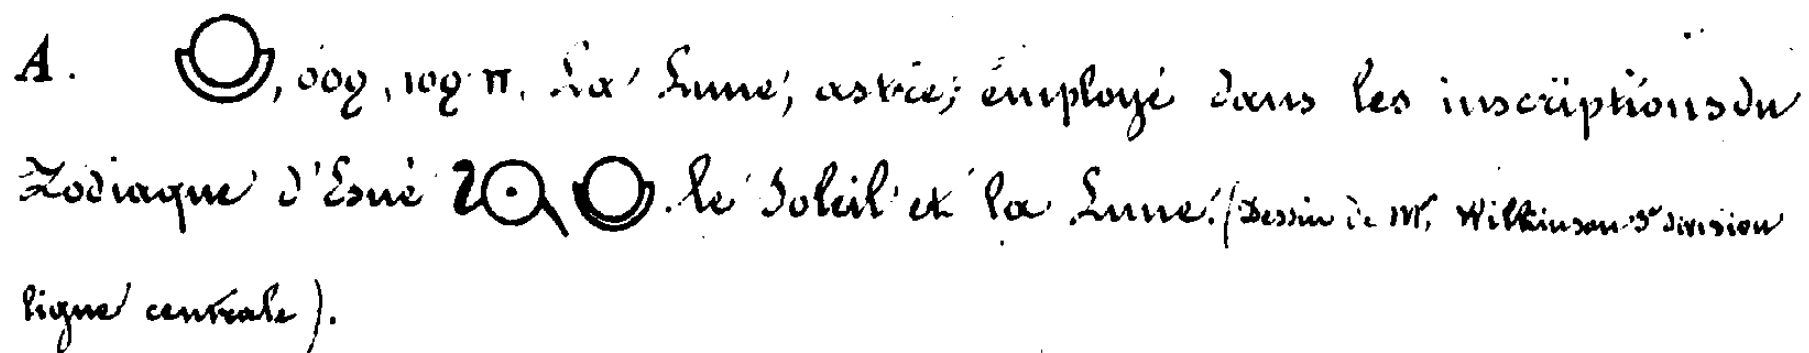 A. , ⲟⲟϩ, ⲓⲟϩ ⲡ. La Lune, astre; employé dans les inscriptions du
Zodiaque d'Esné . le Soleil et la Lune. (Dessin de Mr. Wilkinson 3e division
ligne centrale).